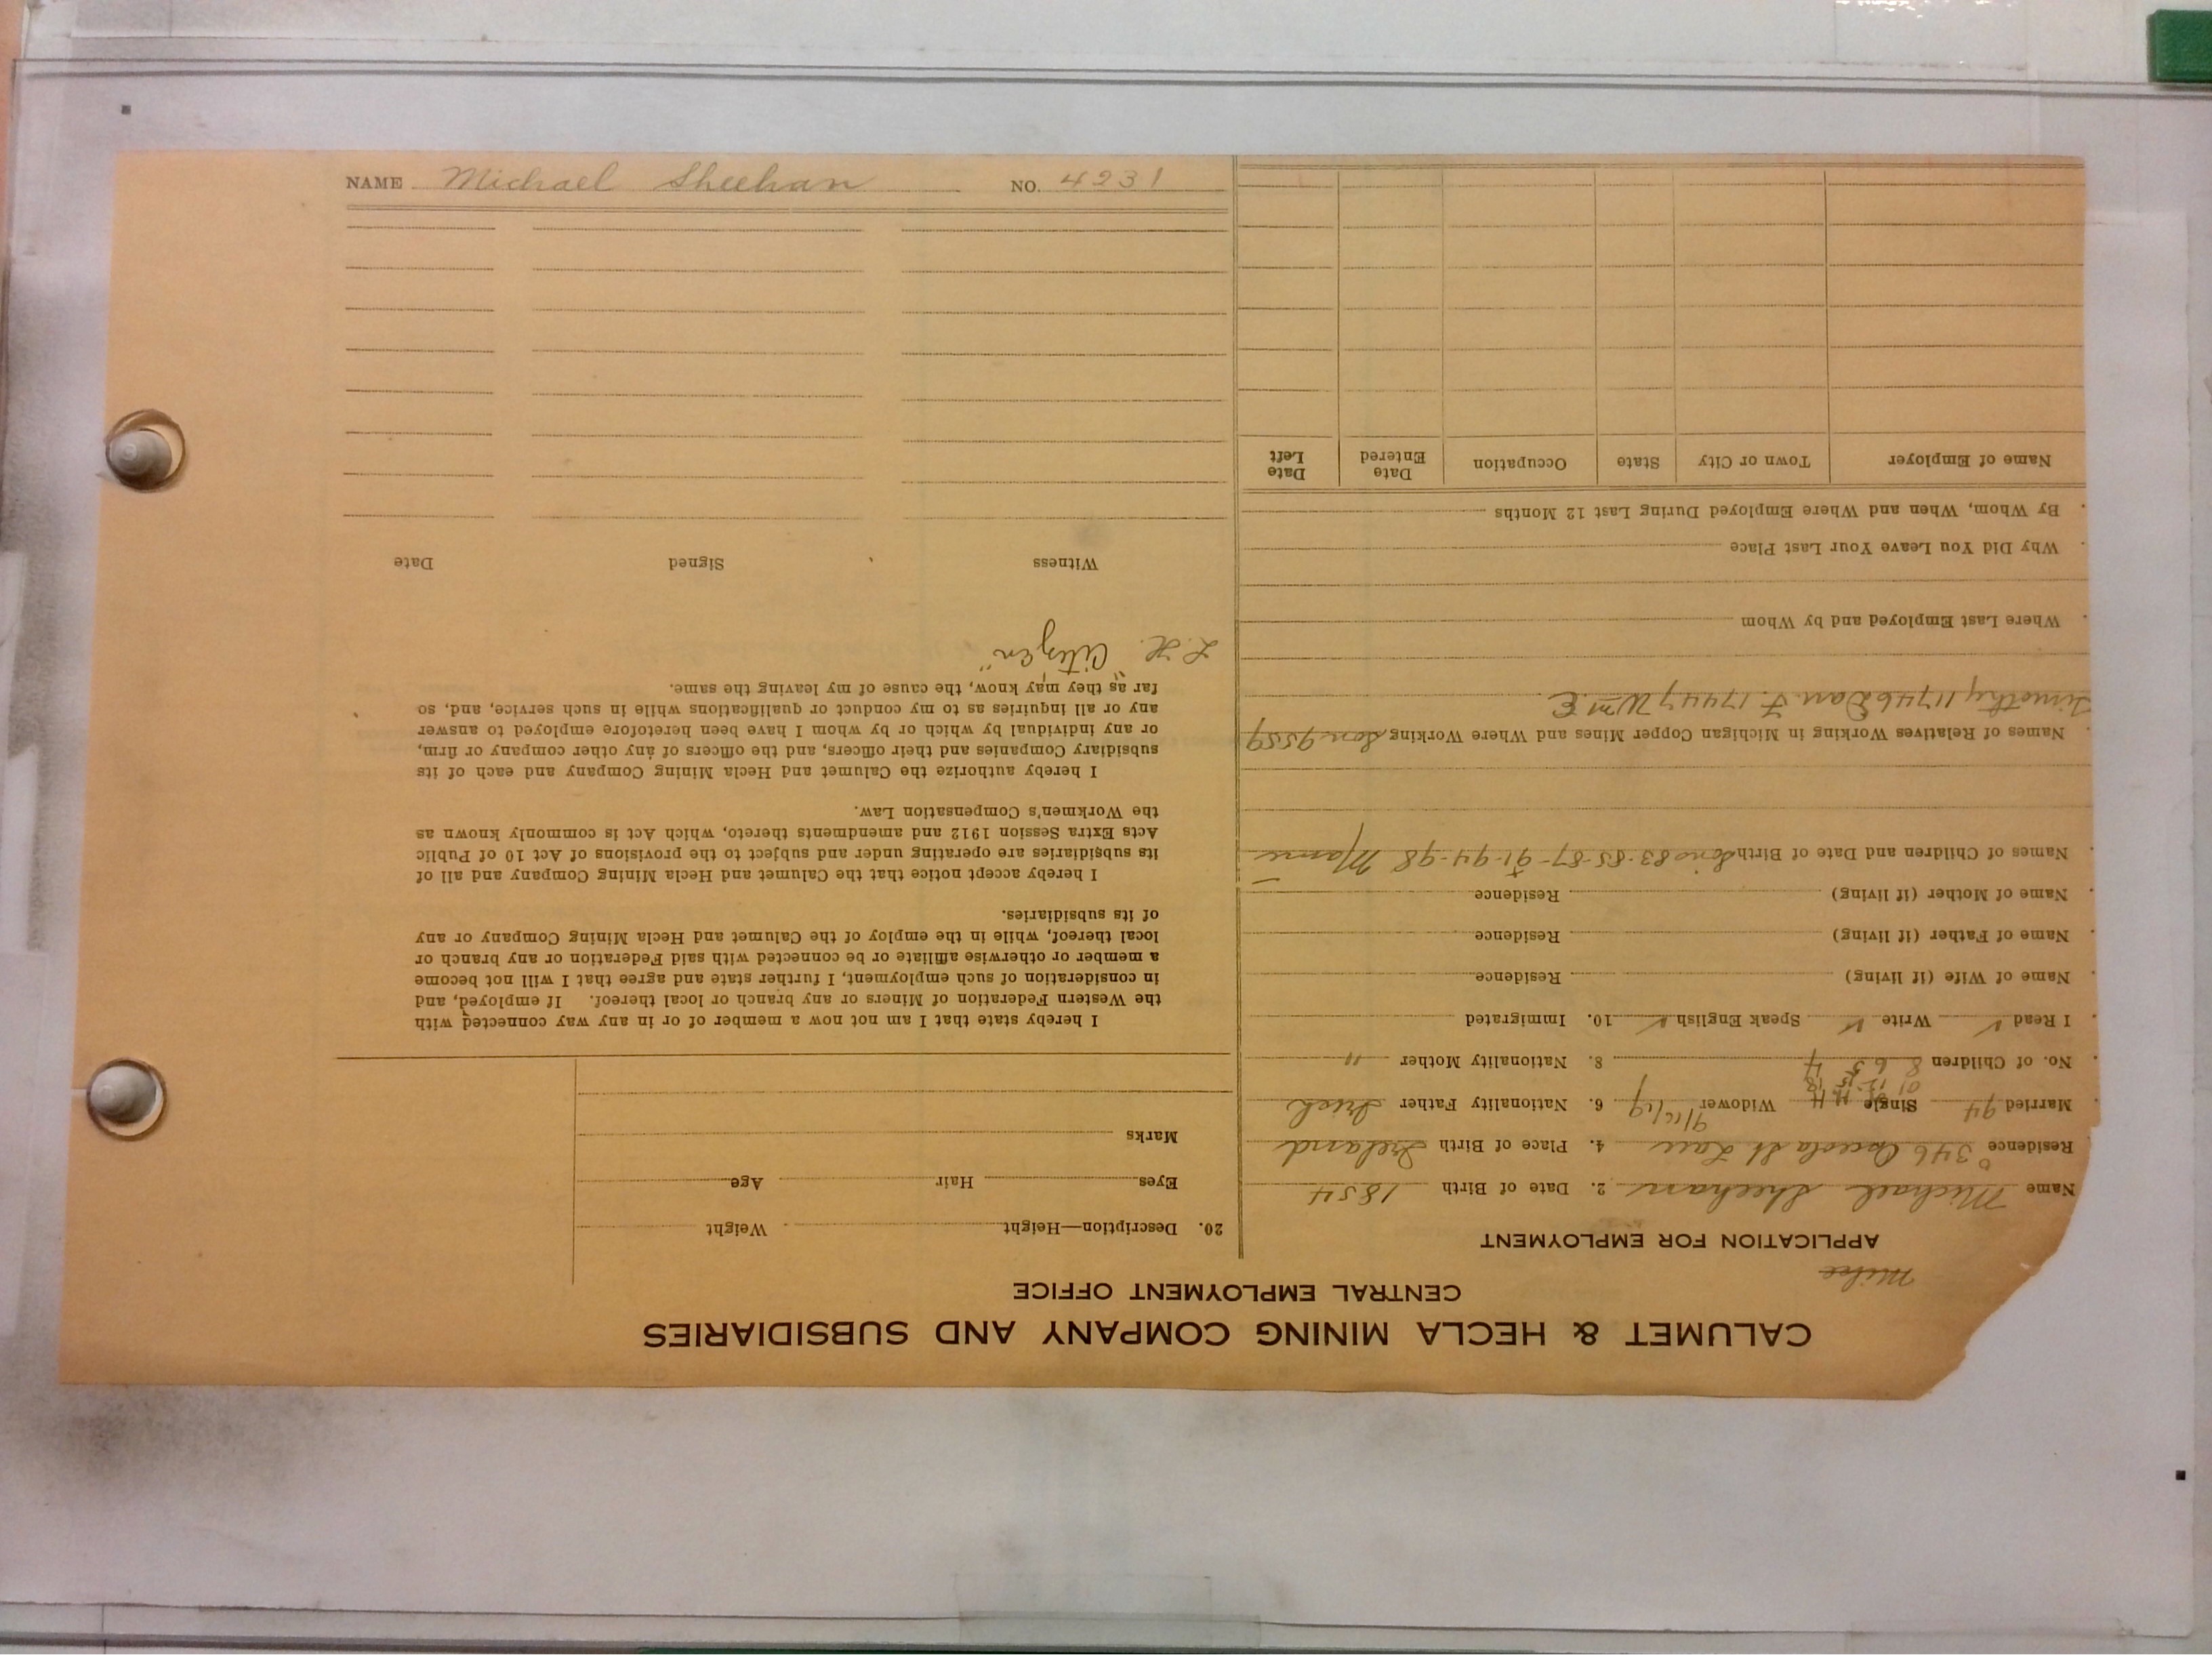 NAME Michael Sheehan NO. 4231
CALUMET & HECLA MINING COMPANY AND SUBSIDIARIES
CENTRAL EMPLOYMENT OFFICE
Mike
APPLICATION FOR EMPLOYMENT
Name Michael Sheehan 2. Date of Birth 1854
Residence 346 Osceola St Lau 4. Place of Birth Ireland
Married 94 Single Widower 9/16/19 6. Nationality Father Irish
01 12 15 18
No. of Children 8 6 5 4 8. Nationality Mother "
I Read ✓ Write ✓ Speak English ✓ 10. Immigrated
Name of Wife (if living) Residence
Name of Father (if living) Residence
Name of Mother (if living) Residence
Names of Children and Date of Birth Sons 83-85-87-91-94-98
Names of Relatives Working in Michigan Copper Mines and Where Working Son 9559
Timothy 11746 Dan. F. 17447 Wm E.
Where Last Employed and by Whom
Why Did You Leave Your Last Place
By Whom, When and Where Employed During Last 12 Months
Name of Employer Town or City State Occupation Date Entered Date Left
20. Description—Height Weight
Eyes Hair Age
Marks
I hereby state that I am not now a member of or in any way connected with
the Western Federation of Miners or any branch or local thereof. If employed, and
in consideration of such employment, I further state and agree that I will not become
a member or otherwise affiliate or be connected with said Federation or any branch or
local thereof, while in the employ of the Calumet and Hecla Mining Company or any
of its subsidiaries.
I hereby accept notice that the Calumet and Hecla Mining Company and all of
its subsidiaries are operating under and subject to the provisions of Act 10 of Public
Acts Extra Session 1912 and amendments thereto, which Act is commonly known as
the Workmen's Compensation Law.
I hereby authorize the Calumet and Hecla Mining Company and each of its
subsidiary Companies and their officers, and the officers of any other company or firm,
or any individual by which or by whom I have been heretofore employed to answer
any or all inquiries as to my conduct or qualifications while in such service, and, so
far as they may know, the cause of my leaving the same.
L.H. "Citizen"
Witness Signed Date